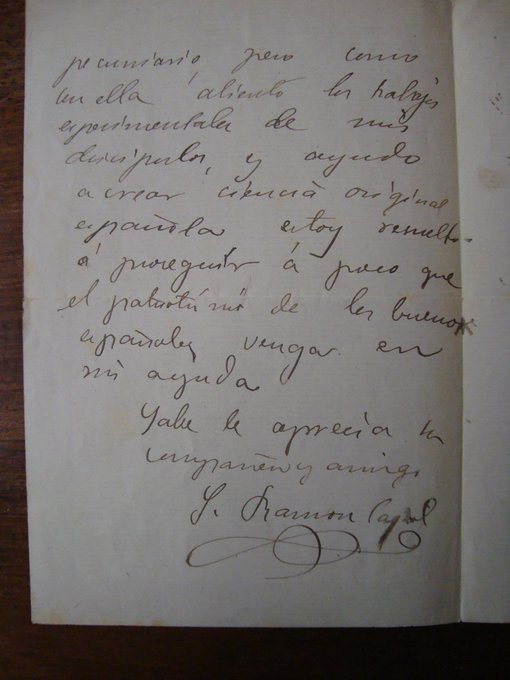 pecuniario, pero como
en ella aliento los trabajos
experimentales de mis
discípulos, y ayudo
a crear ciencia original
española estoy resuelto
á proseguir á poco que
el patriotismo de los buenos
españoles vengan en
mi ayuda
Sabe le aprecia su
compañero y amigo
S. Ramon Cajal